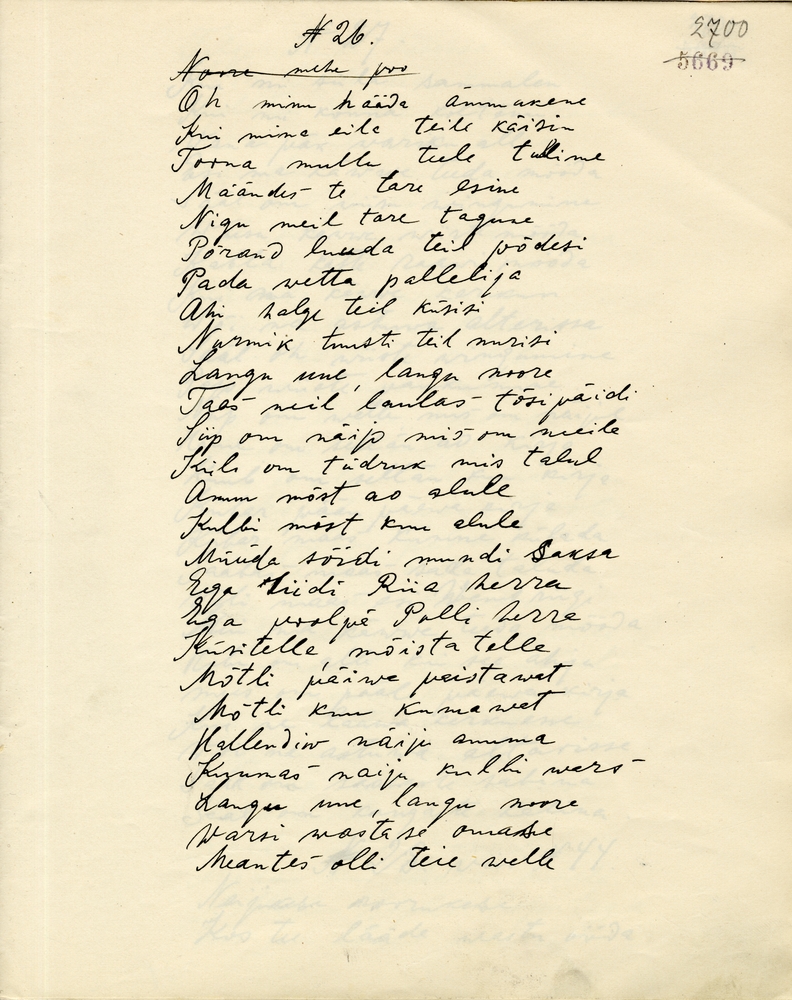 N 26.
2700
5669
Noore mehe poo
Oh minu hääda ämmakene
Kui mina eila teile käisin
Toona mullu teele tullime
Määndes te tare esine
Nigu meil tare tagune
Põrand luuda teil põdesi
Pada wetta pallelija
Ahi halge teil küsisi
Nurmik tuusti teil nurisi
Langu une, langu noore
Taas meil laulas tõsipäidi
Siip om näijo mis om meile
Küli om tüdruk mis talul
Amm mõst ao alule
Kulbi mõst kuu alule
Müüda sõidi mundi Saksa
Ega Riia herra
Ega poolpe Polli herra
Küsitelle, mõista telle
Mõtli päiwe paistawat
Mõtli kuu kumawet
Hallendiw näiju amma
Kuumas naiju kulbi wars
Langu une, langu noore
Warsi wastase omasse
Meantes olli teie welle